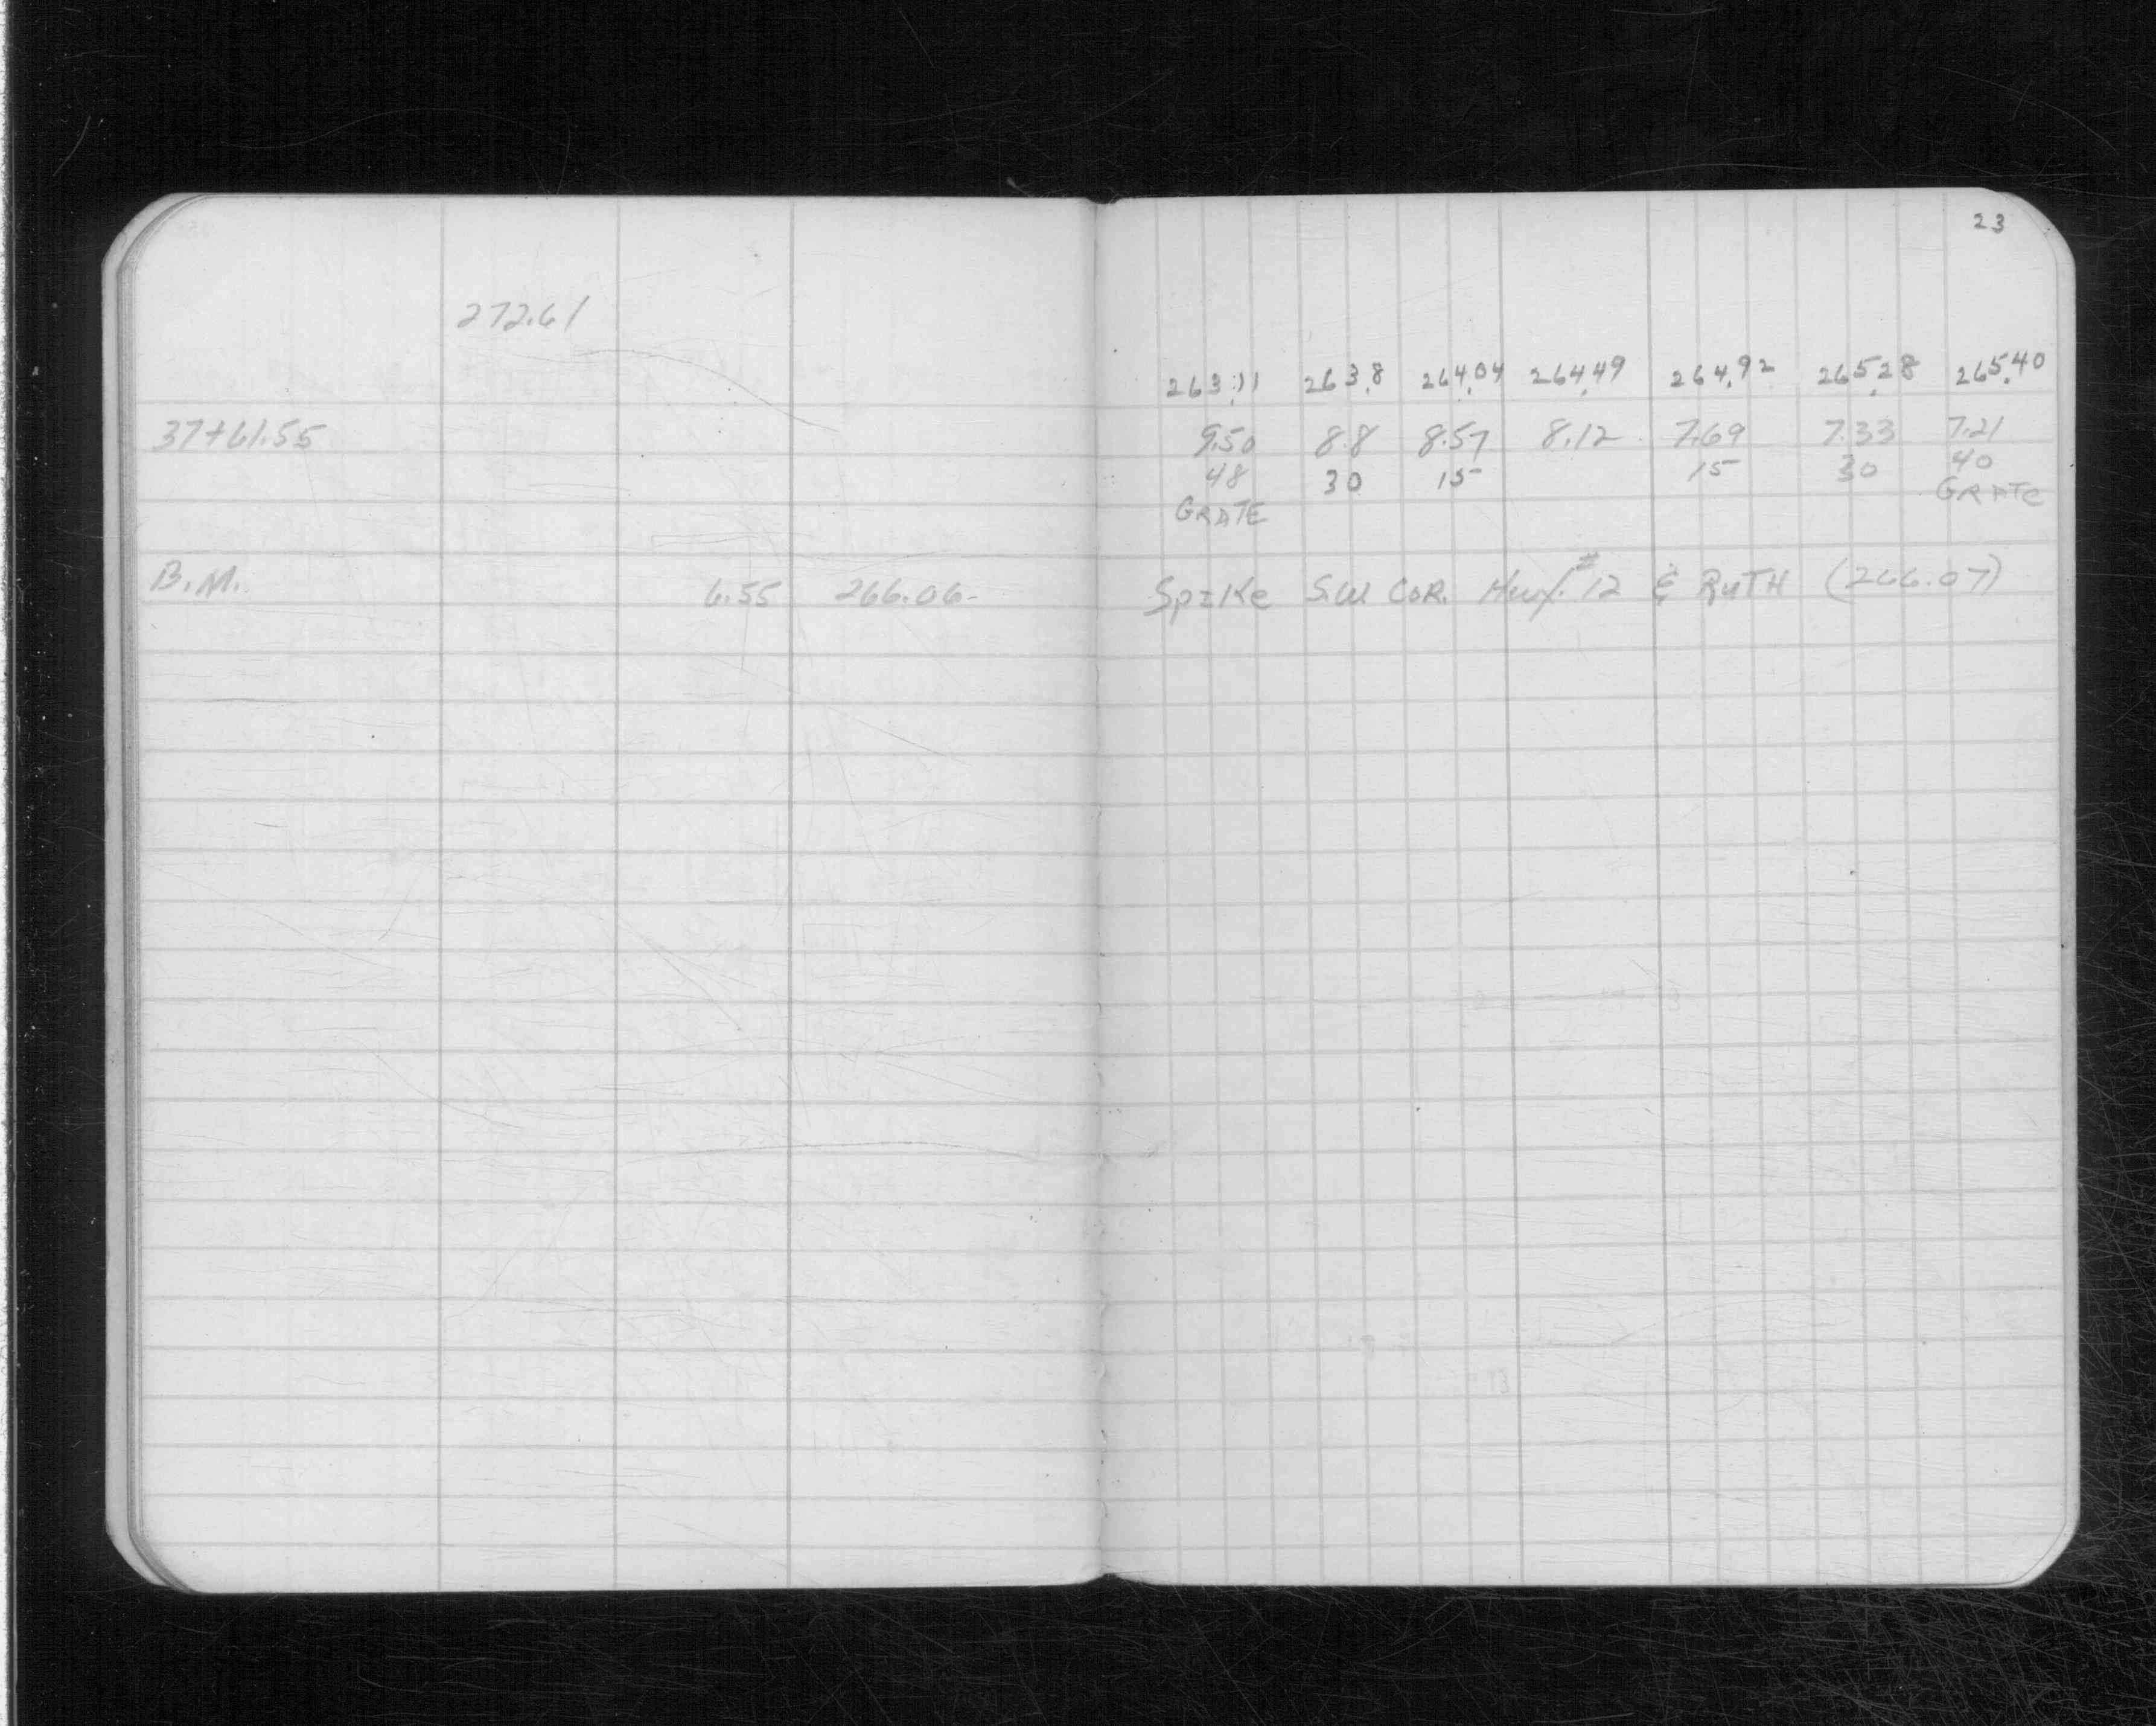 23
272.61
263.11 263.8 264.04 264.49 264.92 265.28 265.40
37+61.55 9.50 8.8 8.57 8.12 7.69 7.33 7.21
48 30 15 15 30 40
GRATE GRATE
B.M. 6.55 266.06- Spike S.W COR. Hwy. #12 & RUTH (266.07)